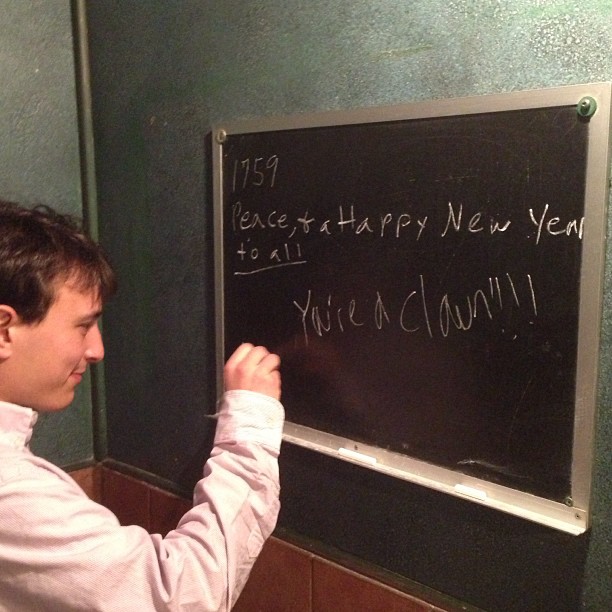 1759
Peace, + a Happy New Year
to all
You're a clown!!!!